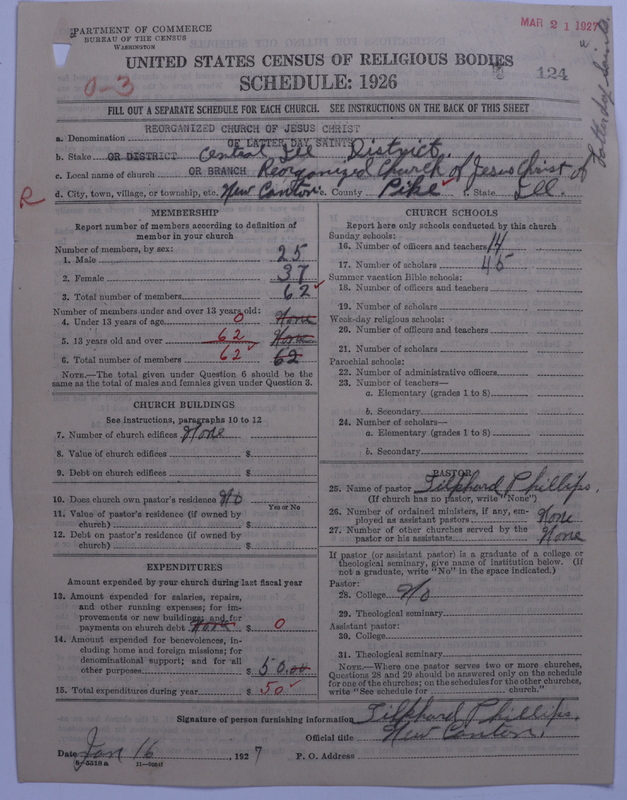 DEPARTMENT OF COMMERCE
BUREAU OF THE CENSUS
WASHINGTON
MAR 21 1927
UNITED STATES CENSUS OF RELIGIOUS BODIES
SCHEDULE: 1926
0-3
124
Latter day Saints.
FILL OUT A SEPARATE SCHEDULE FOR EACH CHURCH. SEE INSTRUCTIONS ON THE BACK OF THIS SHEET
a. Denomination REORGANIZED CHURCH OF JESUS CHRIST
OF LATTER DAY SAINTS
b. Stake OR DISTRICT Central Ill District.
c. Local name of church OR BRANCH Reorganized Church of Jesus Christ of
R
d. City, town, village, or township, etc. New Canton e. County Pike f. State Ill.
MEMBERSHIP
Report number of members according to definition of
member in your church
Number of members, by sex:
1. Male 25
2. Female 37
3. Total number of members 62
Number of members under and over 13 years old:
4. Under 13 years of age 0 None
5. 13 years old and over 62 None
6. Total number of members 62 62
NOTE.—The total given under Question 6 should be the
same as the total of males and females given under Question 3.
CHURCH BUILDINGS
See instructions, paragraphs 10 to 12
7. Number of church edifices None
8. Value of church edifices $
9. Debt on church edifices $
10. Does church own pastor's residence No
Yes or No
11. Value of pastor's residence (if owned by
church) $
12. Debt on pastor's residence (if owned by
church) $
EXPENDITURES
Amount expended by your church during last fiscal year
13. Amount expended for salaries, repairs,
and other running expenses; for im-
provements or new buildings; and for
payments on church debt None $ 0
14. Amount expended for benevolences, in-
cluding home and foreign missions; for
denominational support; and for all
other purposes $ 50.00
15. Total expenditures during year $ 50
CHURCH SCHOOLS
Report here only schools conducted by this church
Sunday schools:
16. Number of officers and teachers 14
17. Number of scholars 45
Summer vacation Bible schools:
18. Number of officers and teachers
19. Number of scholars
Week-day religious schools:
20. Number of officers and teachers
21. Number of scholars
Parochial schools:
22. Number of administrative officers
23. Number of teachers—
a. Elementary (grades 1 to 8)
b. Secondary
24. Number of scholars—
a. Elementary (grades 1 to 8)
b. Secondary
PASTOR
25. Name of pastor Tilphard Phillips.
(If church has no pastor, write "None")
26. Number of ordained ministers, if any, em-
ployed as assistant pastors None
27. Number of other churches served by the
pastor or his assistants None
If pastor (or assistant pastor) is a graduate of a college or
theological seminary, give name of institution below. (If
not a graduate, write "No" in the space indicated.)
Pastor:
28. College No
29. Theological seminary
Assistant pastor:
30. College
31. Theological seminary
NOTE.—Where one pastor serves two or more churches,
Questions 28 and 29 should be answered only on the schedule
for one of the churches; on the schedules for the other churches,
write "See schedule for church."
Signature of person furnishing information Tilphard Phillips.
Official title New Canton.
Date Jan 16, 1927 P. O. Address
8-5518a